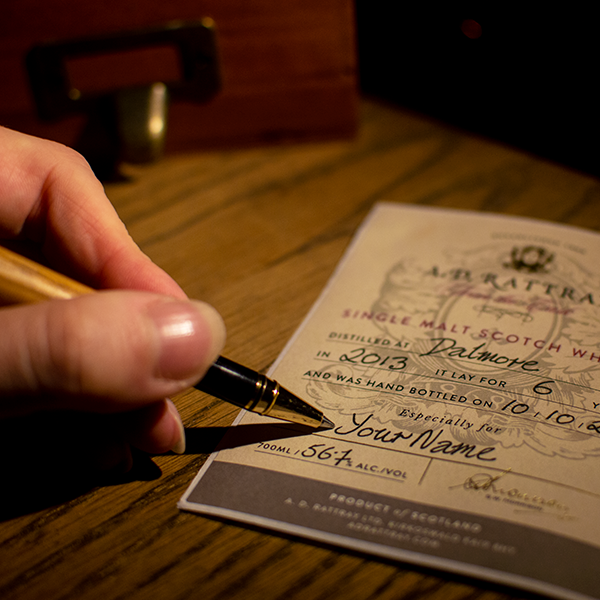 A.D. RATTRAY
SINGLE MALT SCOTCH WH
DISTILLED AT Dalmore
IN 2013 IT LAY FOR 6 Y
AND WAS HAND BOTTLED ON 10/10/2
Especially for
Your Name
700ML / 56.7% ALC./VOL
PRODUCT of SCOTLAND
A. D. RATTRAY LTD,
ADRATTRAY.COM